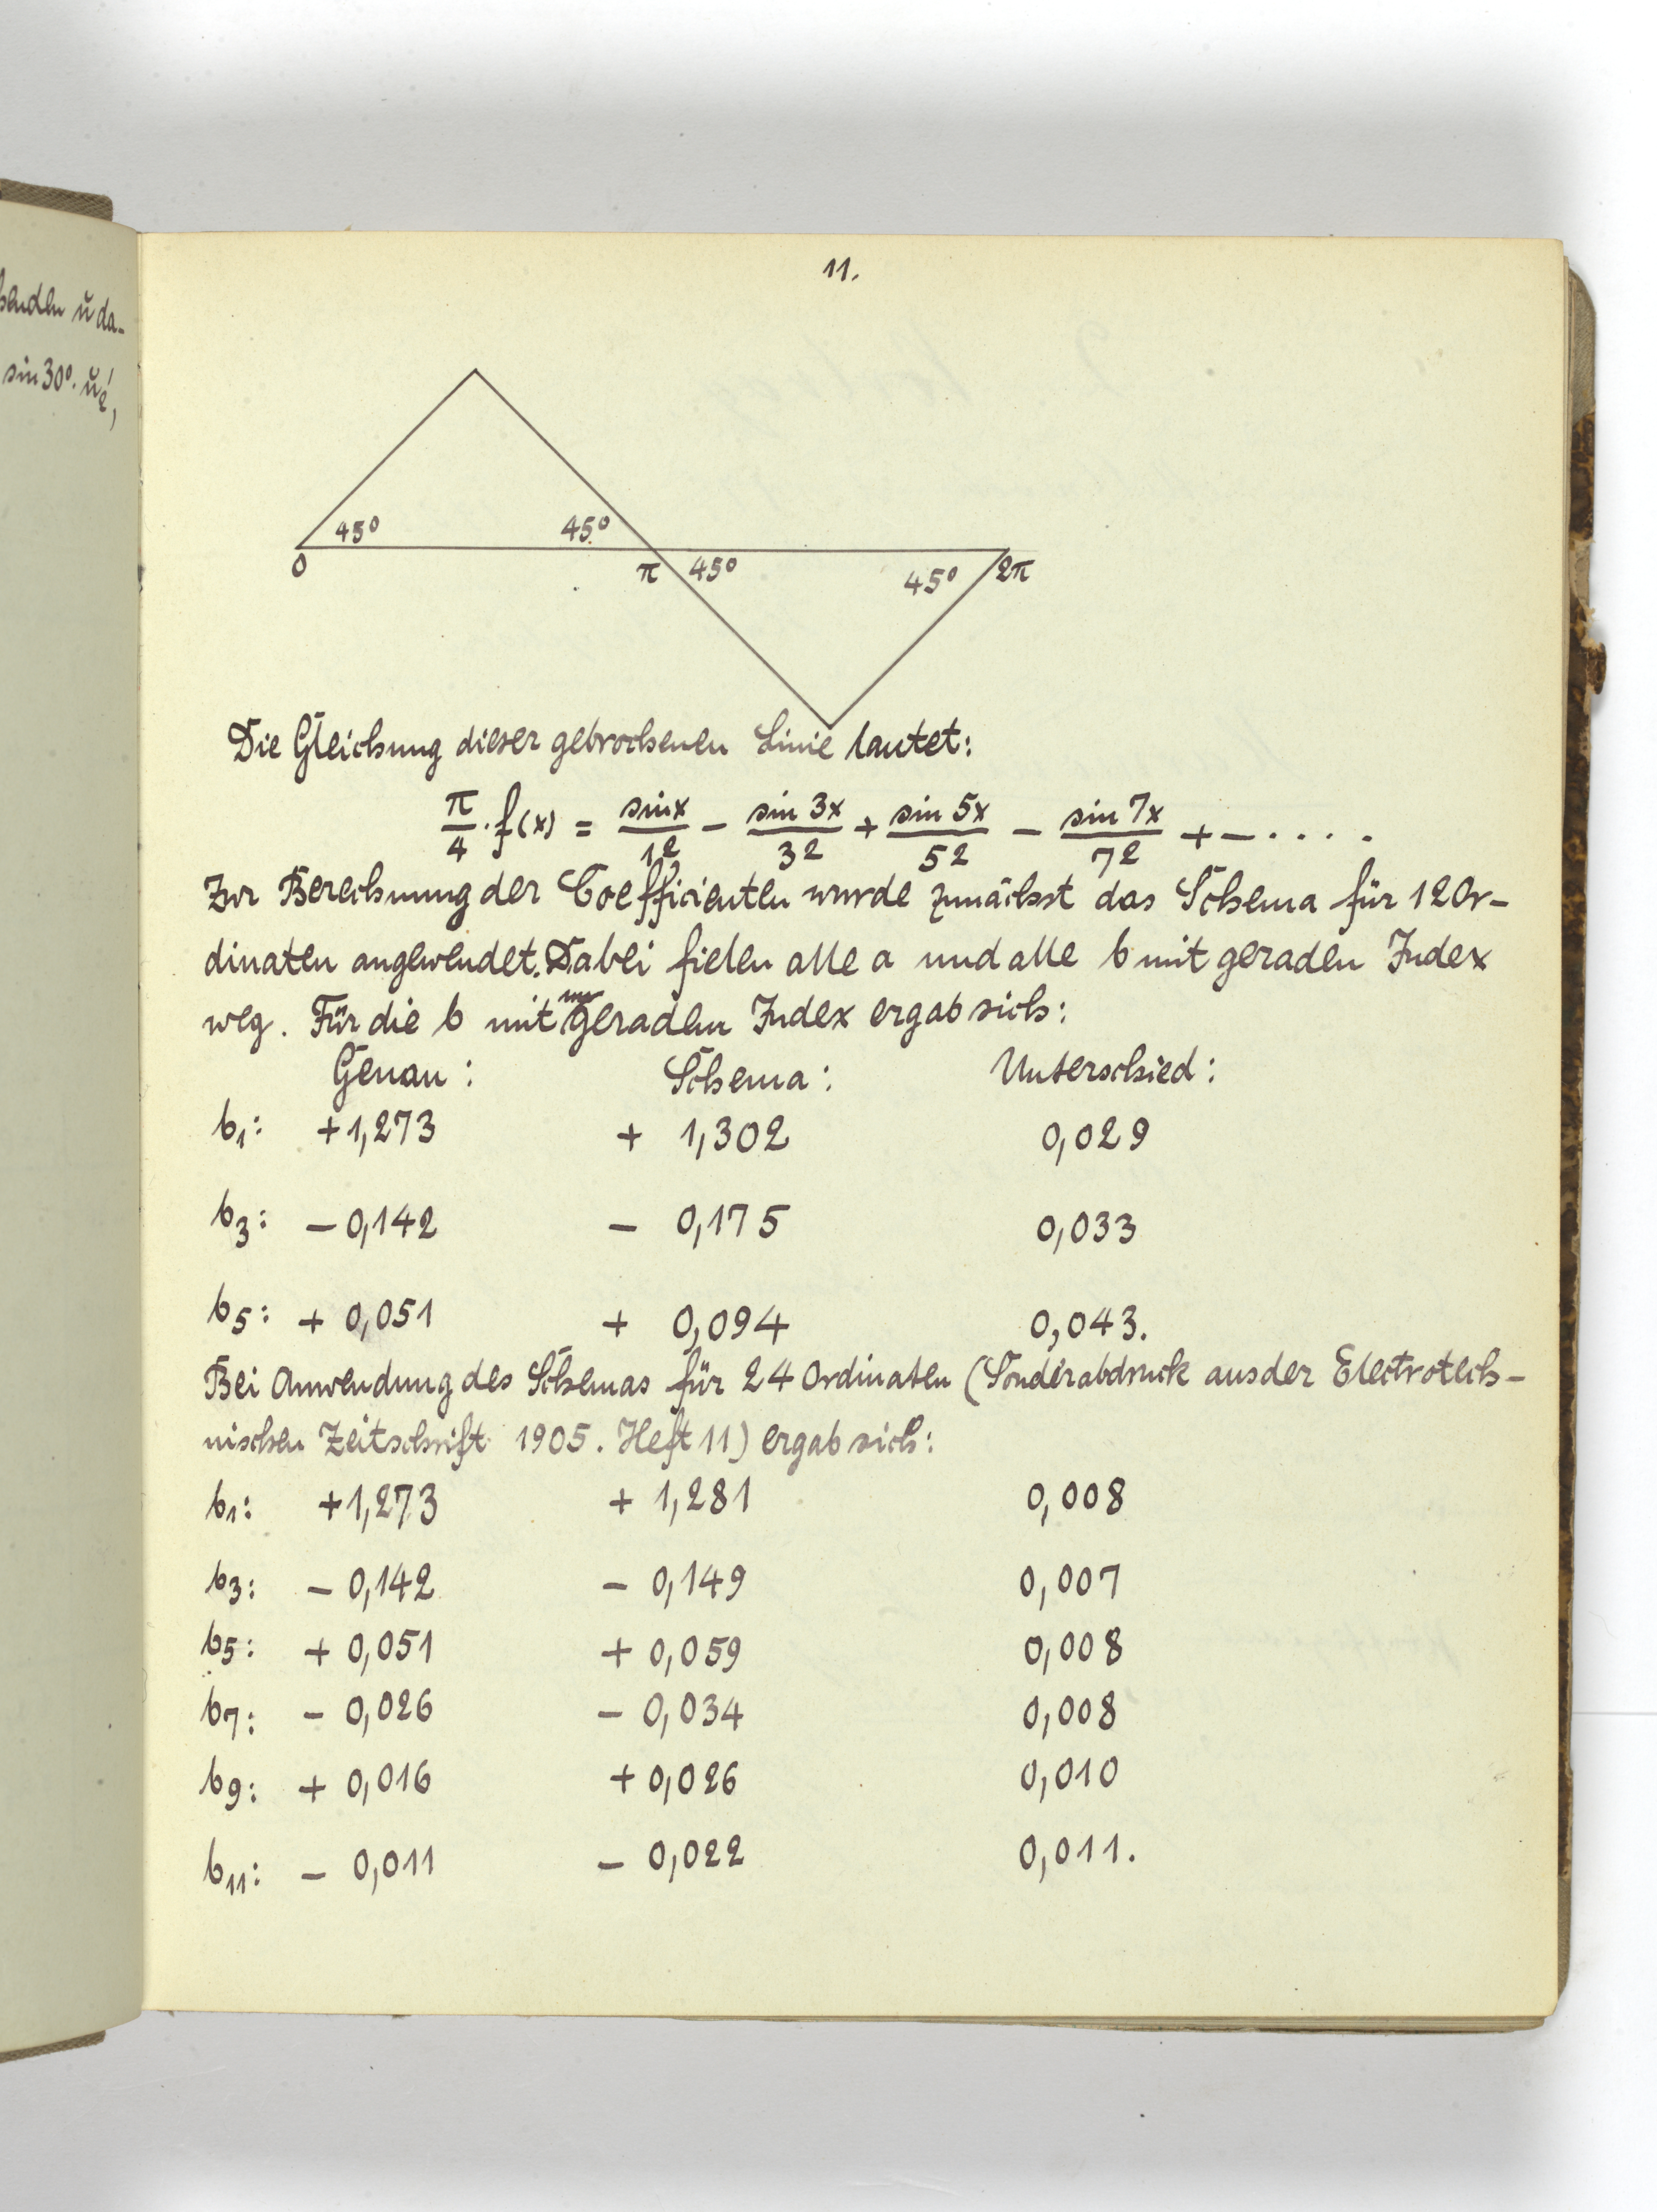 11.
45° 45°
0 π 45° 45° 2π
Die Gleichung dieser gebrochenen Linie lautet:
π/4 · f(x) = sin x/1² − sin 3x/3² + sin 5x/5² − sin 7x/7² + − · · · ·
Zur Berechnung der Coefficienten wurde zunächst das Schema für 12 Or-
dinaten angewendet. Dabei fielen alle a und alle b mit geraden Index
weg. Für die b mit ungeraden Index ergab sich:
Genau: Schema: Unterschied:
b₁: +1,273 + 1,302 0,029
b₃: − 0,142 − 0,175 0,033
b₅: + 0,051 + 0,094 0,043.
Bei Anwendung des Schemas für 24 Ordinaten (Sonderabdruck aus der Electrotech-
nischen Zeitschrift 1905. Heft 11) ergab sich:
b₁: +1,273 + 1,281 0,008
b₃: − 0,142 − 0,149 0,007
b₅: + 0,051 + 0,059 0,008
b₇: − 0,026 − 0,034 0,008
b₉: + 0,016 + 0,026 0,010
b₁₁: − 0,011 − 0,022 0,011.
sin 30°.